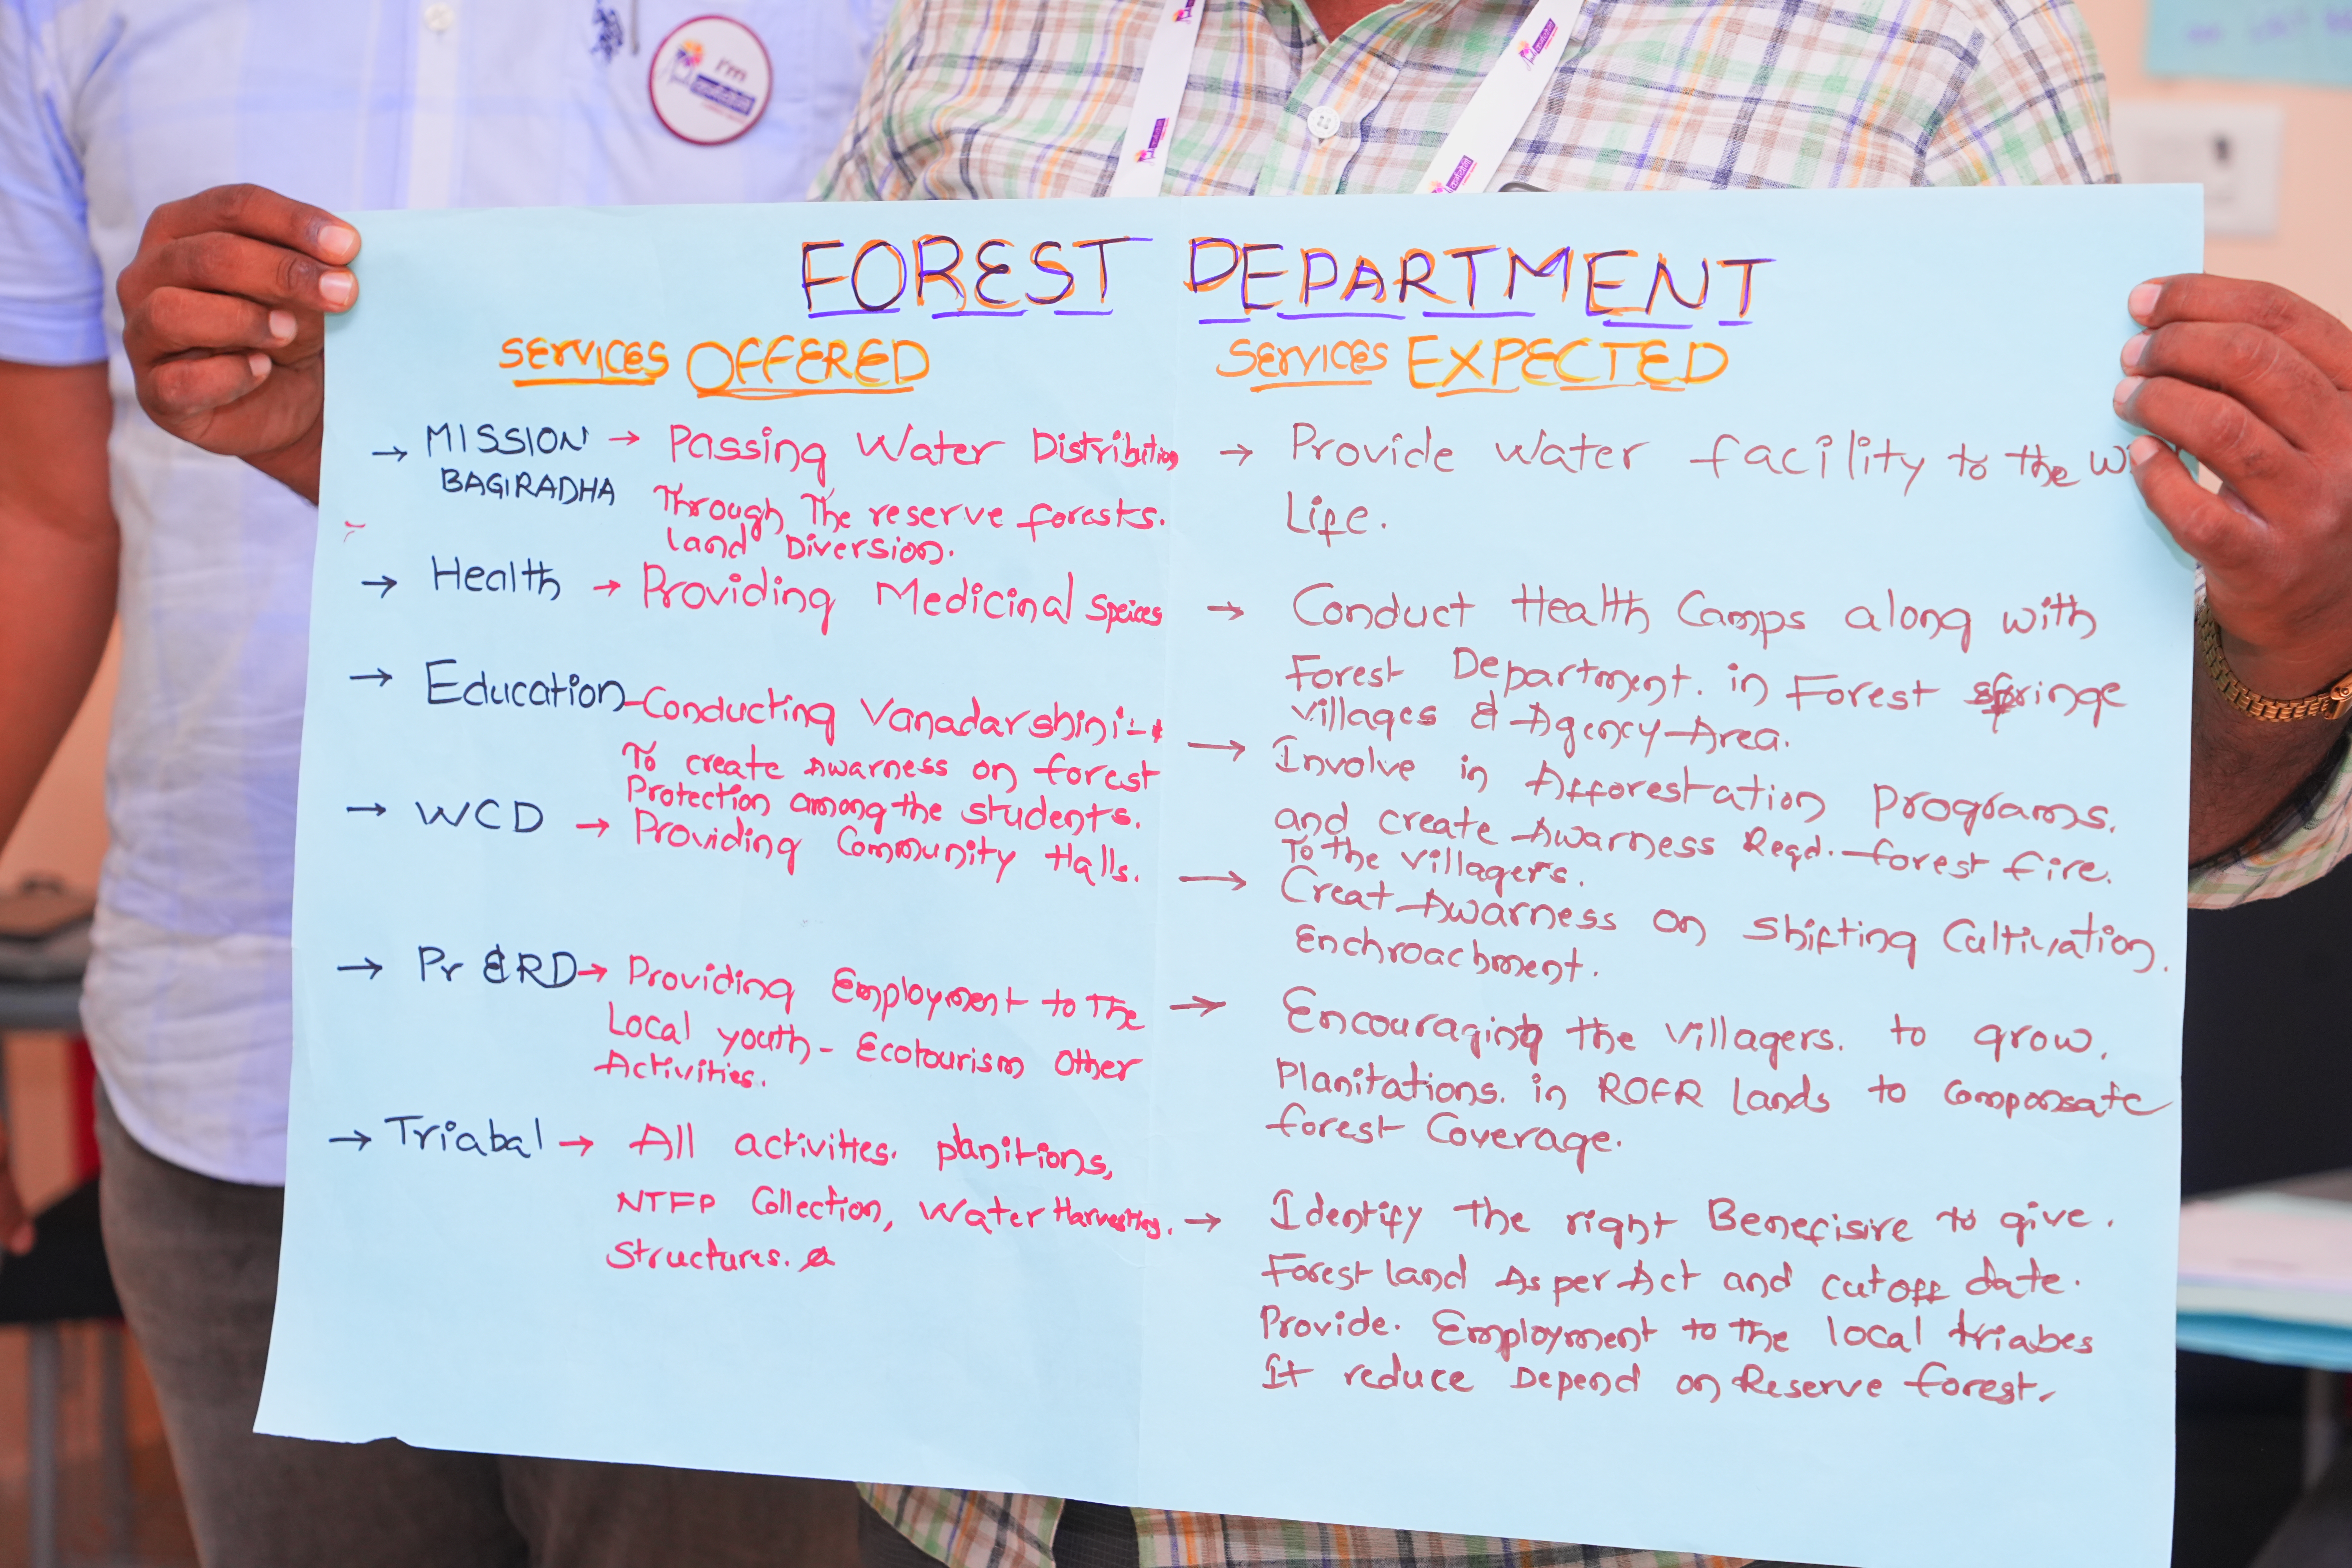 I'm
FOREST DEPARTMENT
SERVICES OFFERED
→ MISSION → Passing Water Distribution
BAGIRADHA Through The reserve forests.
land Diversion.
→ Health → Providing Medicinal Speices
→ Education - Conducting Vanadarshini:-
To create Awarness on forest
Protection among the students.
→ WCD → Providing Community Halls.
→ Pr & RD → Providing Employment to The
Local youth - Ecotourism Other
Activities.
→ Triabal → All activities. planitions,
NTFP Collection, Water Harvesting.
Structures.
SERVICES EXPECTED
→ Provide Water facility to the
Life.
→ Conduct Health Camps along with
Forest Department. in Forest fringe
villages & Agency Area.
→ Involve in Afforestation Programs.
and create Awarness Regd. forest fire.
To the villagers.
→ Creat Awarness on Shifting Cultivation.
Enchroachment.
→ Encouraging the villagers. to grow.
Planitations. in ROFR lands to Componsate
forest Coverage.
→ Identify The right Benefisire to give.
Forest land As per Act and cutoff date.
Provide. Employment to the local triabes
It reduce Depend on Reserve forest.